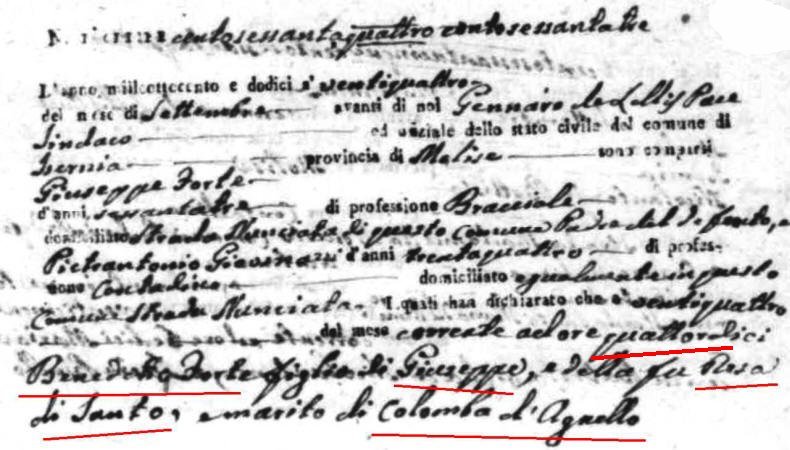 N. centosessantaquattro centosessantatre
L'anno milleottocento e dodici a' ventiquattro
del mese di Settembre avanti di noi Gennaro de Lellis Pace
Sindaco ed uffiziale dello stato civile del comune di
Isernia provincia di Molise sono comparsi
Giuseppe Forte
d'anni sessantatre di professione Bracciale
domiciliato Strada Nunciata di questo comune Padre del defonto, e
Pietrantonio Giovina d'anni trentaquattro di profes-
sione Contadino domiciliato egualmente in questo
Comune Strada Nunciata I quali han dichiarato che a' ventiquattro
del mese corrente ad ore quattordici
Benedetto Forte figlio di Giuseppe, e della fu Rosa
di Santo, e marito di Colomba d'Agnello